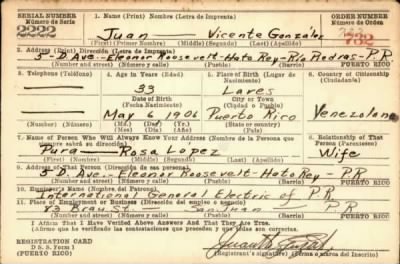 SERIAL NUMBER 1. Name (Print) (Nombre en Letra de Imprenta) ORDER NUMBER
Número de Serie Número de Orden
2222 Juan — Vicente González 732
(First) (Primer Nombre) (Middle) (Segundo) (Last) (Apellido)
2. Address (Print) Dirección (Letra de Imprenta)
5-D. Ave--Eleanor Roosevelt-Hato Rey-Río Piedras, P.R.
(Number and street) (Número y calle) (Town) (Pueblo) PUERTO RICO
3. Telephone (Teléfono) 4. Age in Years (Edad) 5. Place of Birth (Lugar de Nacimiento) 6. Country of Citizenship (Ciudadanía)
33 Lares
Date of Birth City or Town
(Fecha Nacimiento) (Ciudad o Pueblo)
May 6, 1906 Puerto Rico Venezolano
(Number) (Número) (Mo.) (Day) (Día) (Yr.) (Año) (State or country)
7. Name of Person Who Will Always Know Your Address (Nombre de la Persona que siempre sabrá su dirección) 8. Relationship of That Person (Parentesco)
Pura — Rosa López Wife
(First) (Primero) (Middle) (Segundo) (Last) (Apellido)
9. Address of That Person (Dirección de esa persona)
5-D. Ave--Eleanor Roosevelt-Hato Rey, P.R.
(Number and street) (Número y calle) (Town) (Pueblo) PUERTO RICO
10. Employer's Name (Nombre del Patrono)
International General Electric of P.R.
11. Place of Employment or Business (Dirección del empleo o negocio)
San Juan P.R.
(Number and street) (Número y calle) (Town) (Pueblo) PUERTO RICO
I Affirm That I Have Verified Above Answers And That They Are True.
REGISTRATION CARD
D. S. S. Form 1
(PUERTO RICO) (Registrant's signature) (Firma o marca del Inscrito)